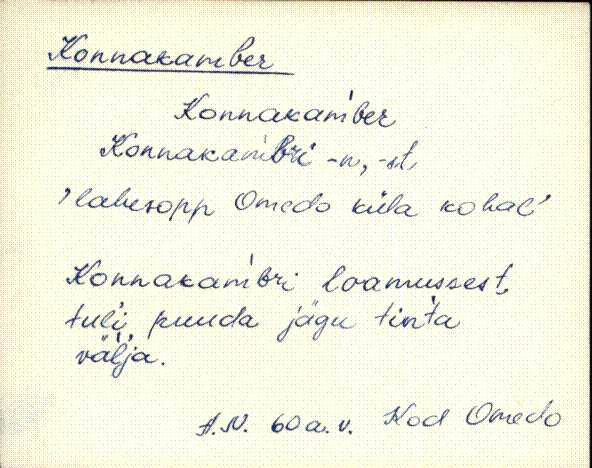 Konnakamber
Konnakam'ber
Konnakam'bri -n, -st
'lahesopp Omedo küla kohal'
Konnakam'bri loamussest,
tul'i puuda jägu tin'ta
väl'ja.
A.N. 60 a.v. Kod Omedo